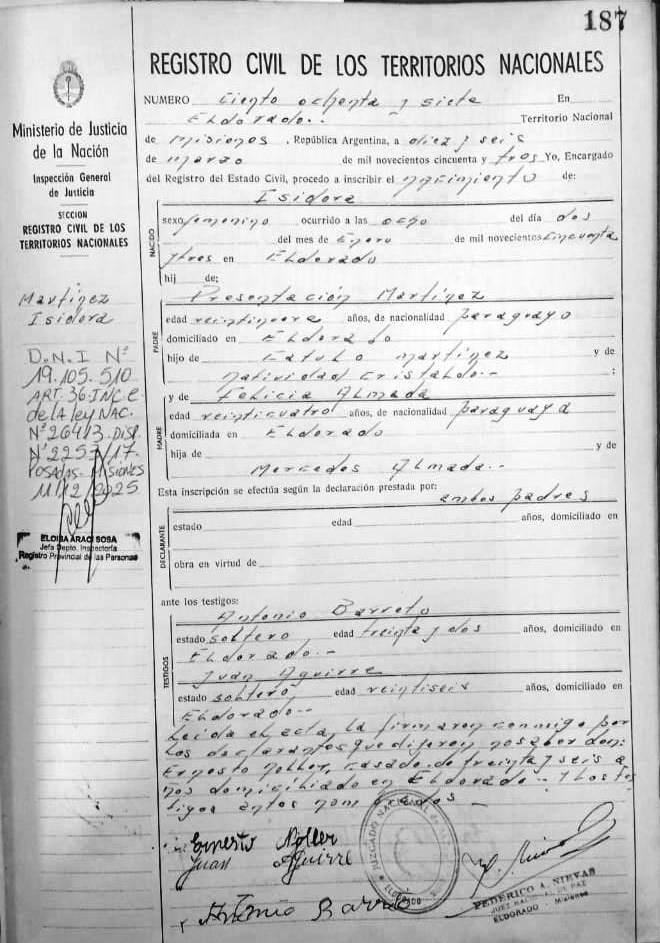 187
REGISTRO CIVIL DE LOS TERRITORIOS NACIONALES
Ministerio de Justicia
de la Nación
Inspección General
de Justicia
SECCION
REGISTRO CIVIL DE LOS
TERRITORIOS NACIONALES
Martinez
Isidora
D.N.I Nº
19.105.510
ART. 36. INC. e
de la ley NAC.
Nº 26413. Disp.
Nº 2257/17.
POSADAS. MISIONES
11/12/2025
ELOISA ARACI SOSA
Jefa Dpto. Inspectoría
Registro Provincial de las Personas
NUMERO ciento ochenta y siete En
Eldorado.- Territorio Nacional
de Misiones. República Argentina, a diez y seis
de marzo de mil novecientos cincuenta y tres Yo, Encargado
del Registro del Estado Civil, procedo a inscribir el nacimiento de:
Isidora
NACIDO
sexo femenino ocurrido a las ocho del día dos
del mes de Enero de mil novecientos cincuenta
y tres en Eldorado
hij de:
PADRE
Presentación Martinez
edad veintinueve años, de nacionalidad paraguayo
domiciliado en Eldorado
hijo de Catulo Martinez y de
Natividad Cristaldo.- ;
MADRE
y de Felicia Almada
edad veinticuatro años, de nacionalidad paraguaya
domiciliada en Eldorado
hija de y de
Mercedes Almada.-
Esta inscripción se efectúa según la declaración prestada por: ambos padres
DECLARANTE
estado edad años, domiciliado en
obra en virtud de
ante los testigos:
TESTIGOS
Antonio Barreto
estado soltero, edad treinta y dos años, domiciliado en
Eldorado.-
Juan Aguirre
estado soltero edad veintiseis años, domiciliado en
Eldorado.-
Leida el acta, la firmaron conmigo por
los declarantes que dijeron no saber don:
Ernesto Noller, casado, de treinta y seis a-
ños domiciliado en Eldorado.- y los tes
tigos antes nombrados -
Ernesto Noller
Juan Aguirre
Antonio Barreto
JUZGADO NACIONAL DE PAZ
ELDORADO
FEDERICO A. NIEVAS
JUEZ NACIONAL DE PAZ
ELDORADO - Misiones